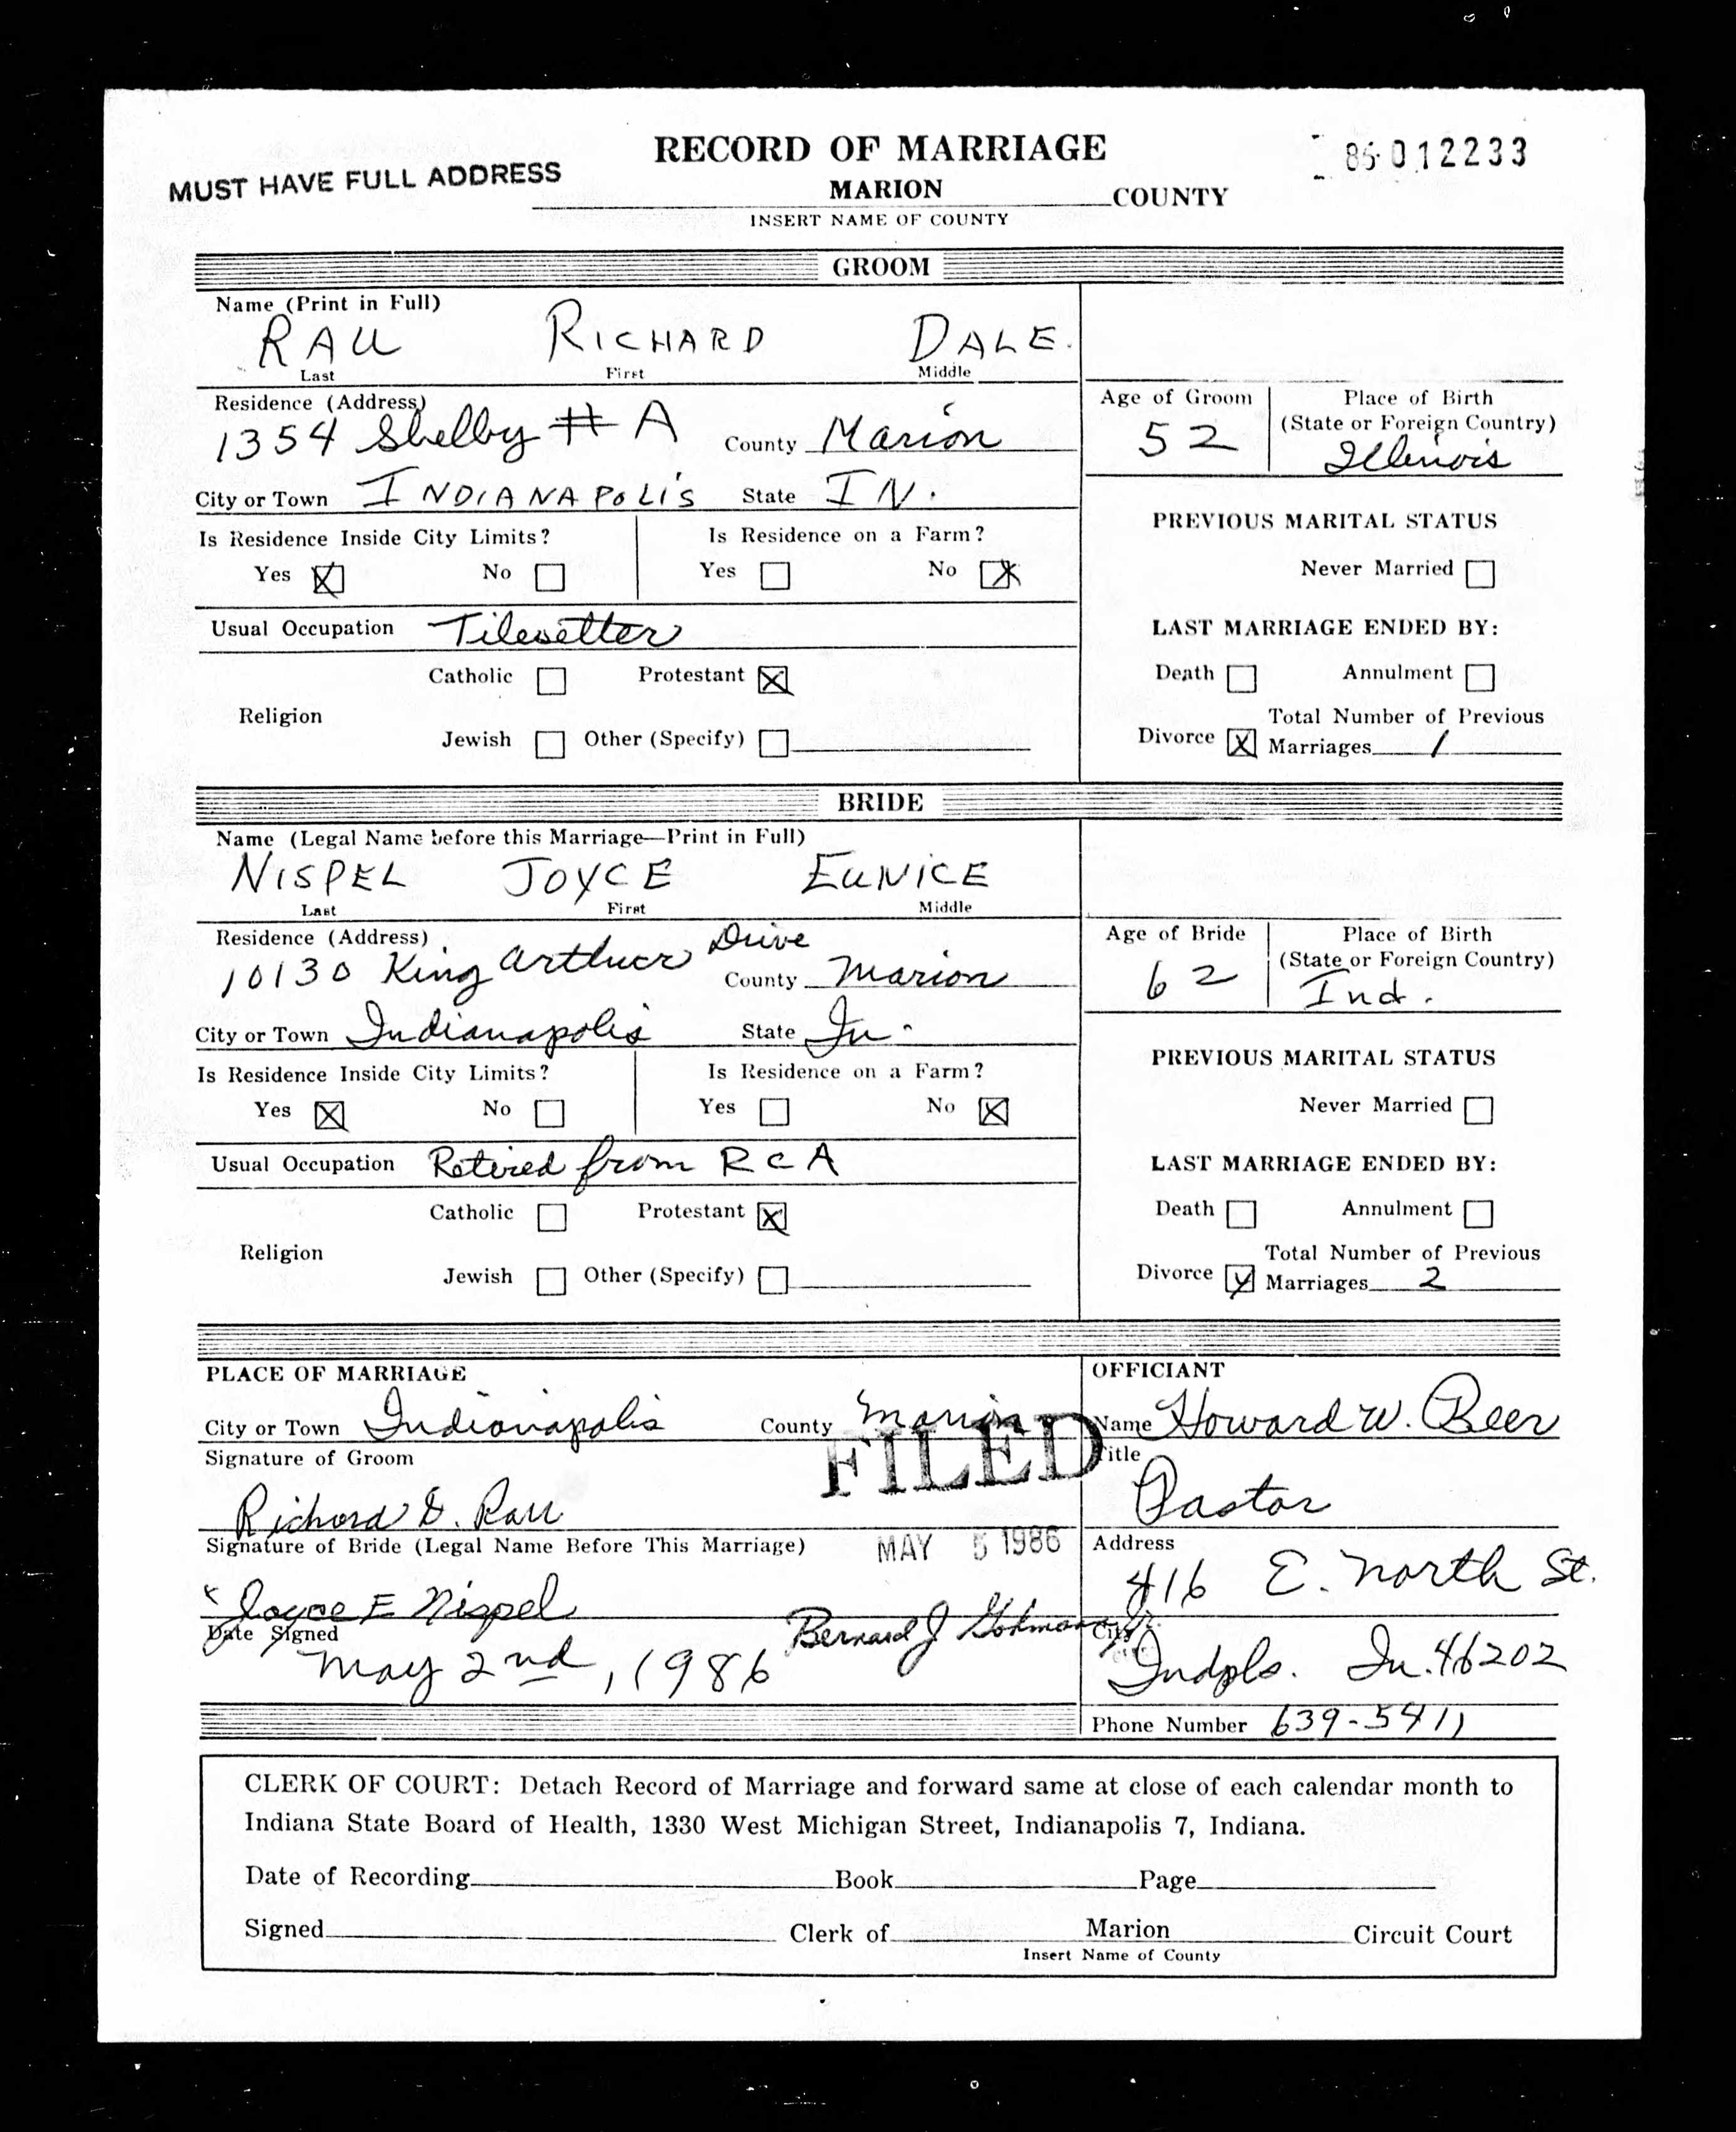 RECORD OF MARRIAGE
MUST HAVE FULL ADDRESS
86 012233
MARION COUNTY
INSERT NAME OF COUNTY
GROOM
Name (Print in Full)
RAU RICHARD DALE.
Last First Middle
Residence (Address)
1354 Shelby # A County Marion
Age of Groom 52
Place of Birth
(State or Foreign Country)
Illinois
City or Town INDIANAPOLIS State IN.
Is Residence Inside City Limits? Is Residence on a Farm?
Yes X No Yes No X
PREVIOUS MARITAL STATUS
Never Married
Usual Occupation Tilesetter
LAST MARRIAGE ENDED BY:
Catholic Protestant X
Death Annulment
Religion
Jewish Other (Specify)
Total Number of Previous
Divorce X Marriages 1
BRIDE
Name (Legal Name before this Marriage—Print in Full)
NISPEL JOYCE EUNICE
Last First Middle
Residence (Address)
10130 King Arthur Drive County Marion
Age of Bride 62
Place of Birth
(State or Foreign Country)
Ind.
City or Town Indianapolis State In.
Is Residence Inside City Limits? Is Residence on a Farm?
Yes X No Yes No X
PREVIOUS MARITAL STATUS
Never Married
Usual Occupation Retired from RCA
LAST MARRIAGE ENDED BY:
Catholic Protestant X
Death Annulment
Religion
Jewish Other (Specify)
Total Number of Previous
Divorce X Marriages 2
PLACE OF MARRIAGE
City or Town Indianapolis County Marion
FILED
Signature of Groom
Richard D. Rau
Signature of Bride (Legal Name Before This Marriage)
MAY 5 1986
x Joyce E Nispel
Bernard J
Date Signed
May 2nd, 1986
OFFICIANT
Name Howard W. Beer
Title
Pastor
Address
416 E. North St.
City
Indpls. In. 46202
Phone Number 639-5411
CLERK OF COURT: Detach Record of Marriage and forward same at close of each calendar month to
Indiana State Board of Health, 1330 West Michigan Street, Indianapolis 7, Indiana.
Date of Recording Book Page
Signed Clerk of Marion Circuit Court
Insert Name of County